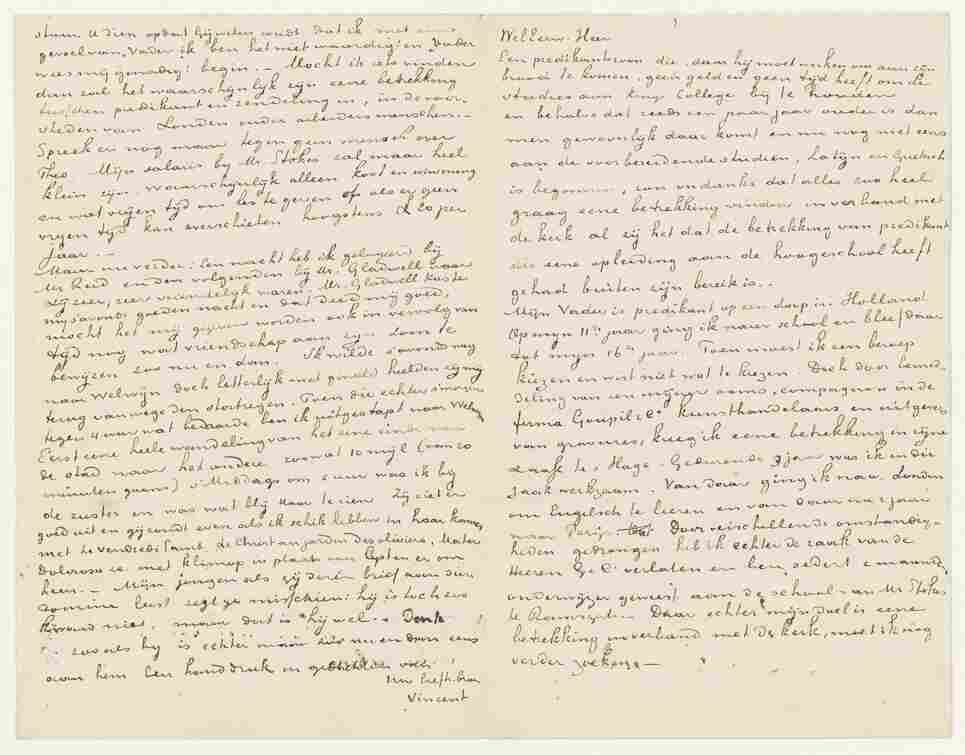 stuur U dien opdat gij weten zoudt dat ik met een
gevoel van, Vader ik ben het niet waardig! en Vader
wees mij genadig! begin. — Mocht ik iets vinden
dan zal het waarschijnlijk zijn eene betrekking
tusschen predikant en zendeling in, in de voor-
steden van Londen onder arbeidersmenschen. —
Spreek er nog maar tegen geen mensch over
Theo. Mijn salaris bij Mr. Stokes zal maar heel
klein zijn. Waarschijnlijk alleen kost en inwoning
en wat vrijen tijd om les te geven of als er geen
vrijen tijd kan overschieten hoogstens £ 20 per
jaar. —
Maar nu verder: Een nacht heb ik gelogeerd bij
Mr Reid en den volgenden bij Mr. Gladwell waar
zij zeer, zeer vriendelijk waren. Mr. Gladwell kuste
mij 's avonds goeden nacht en dat deed mij goed,
mocht het mij gegeven worden ook in vervolg van
tijd nog wat vriendschap aan zijn zoon te
bewijzen zoo nu en dan. Ik wilde 's avonds nog
naar Welwyn doch letterlijk met geweld hielden zij mij
terug vanwege den stortregen. Toen die echter 's morgens
tegen 4 uur wat bedaarde ben ik uitgestapt naar Welwyn
Eerst eene heele wandeling van het eene einde van
de stad naar het andere zoowat 10 mijl (van 20
minuten gaans) 's Middags om 5 uur was ik bij
de zuster en was wat blij haar te zien. Zij ziet er
goed uit en gij zoudt even als ik schik hebben in haar kamer,
met le vendredi Saint, le Christ au jardin des oliviers, Mater
Dolorosa ec met klimop in plaats van lijsten er om
heen. — Mijn jongen als gij dezen brief aan dien
dominé leest zegt ge misschien: hij is toch zoo
kwaad niet, maar dat is hij wel. Denk
zooals hij is echter nu en dan eens
over hem Een handdruk in gedachten van
Uw liefh. broer
Vincent

WelEerw. Heer
Een predikantszoon die, daar hij moet werken om aan zijn
brood te komen, geen geld en geen tijd heeft om de
studies aan Kings College bij te houden
en behalve dat reeds een paar jaar ouder is dan
men gewoonlijk daar komt en nu nog niet eens
aan de voorbereidende studien, Latijn en Grieksch
is begonnen, zou ondanks dat alles zoo heel
graag eene betrekking vinden in verband met
de kerk al zij het dat de betrekking van predikant
die eene opleiding aan de hoogeschool heeft
gehad buiten zijn bereik is..
Mijn Vader is predikant op een dorp in Holland
Op mijn 11de jaar ging ik naar school en bleef daar
tot mijn 16de jaar. Toen moest ik een beroep
kiezen en wist niet wat te kiezen. Doch door bemid-
deling van een mijner ooms, compagnon in de
firma Goupil & Co Kunsthandelaars en uitgevers
van gravures, kreeg ik eene betrekking in zijne
zaak te 's Hage. Gedurende 3 jaar was ik in die
zaak werkzaam. Van daar ging ik naar Londen
om Engelsch te leeren en van daar na 2 jaar
naar Parijs. Door verschillende omstandig-
heden gedrongen heb ik echter de zaak van de
Heeren G & Co verlaten en ben sedert 2 maanden
onderwijzer geweest aan de school van Mr. Stokes
te Ramsgate. — Daar echter mijn doel is eene
betrekking in verband met de kerk, moet ik nog
verder zoeken. —